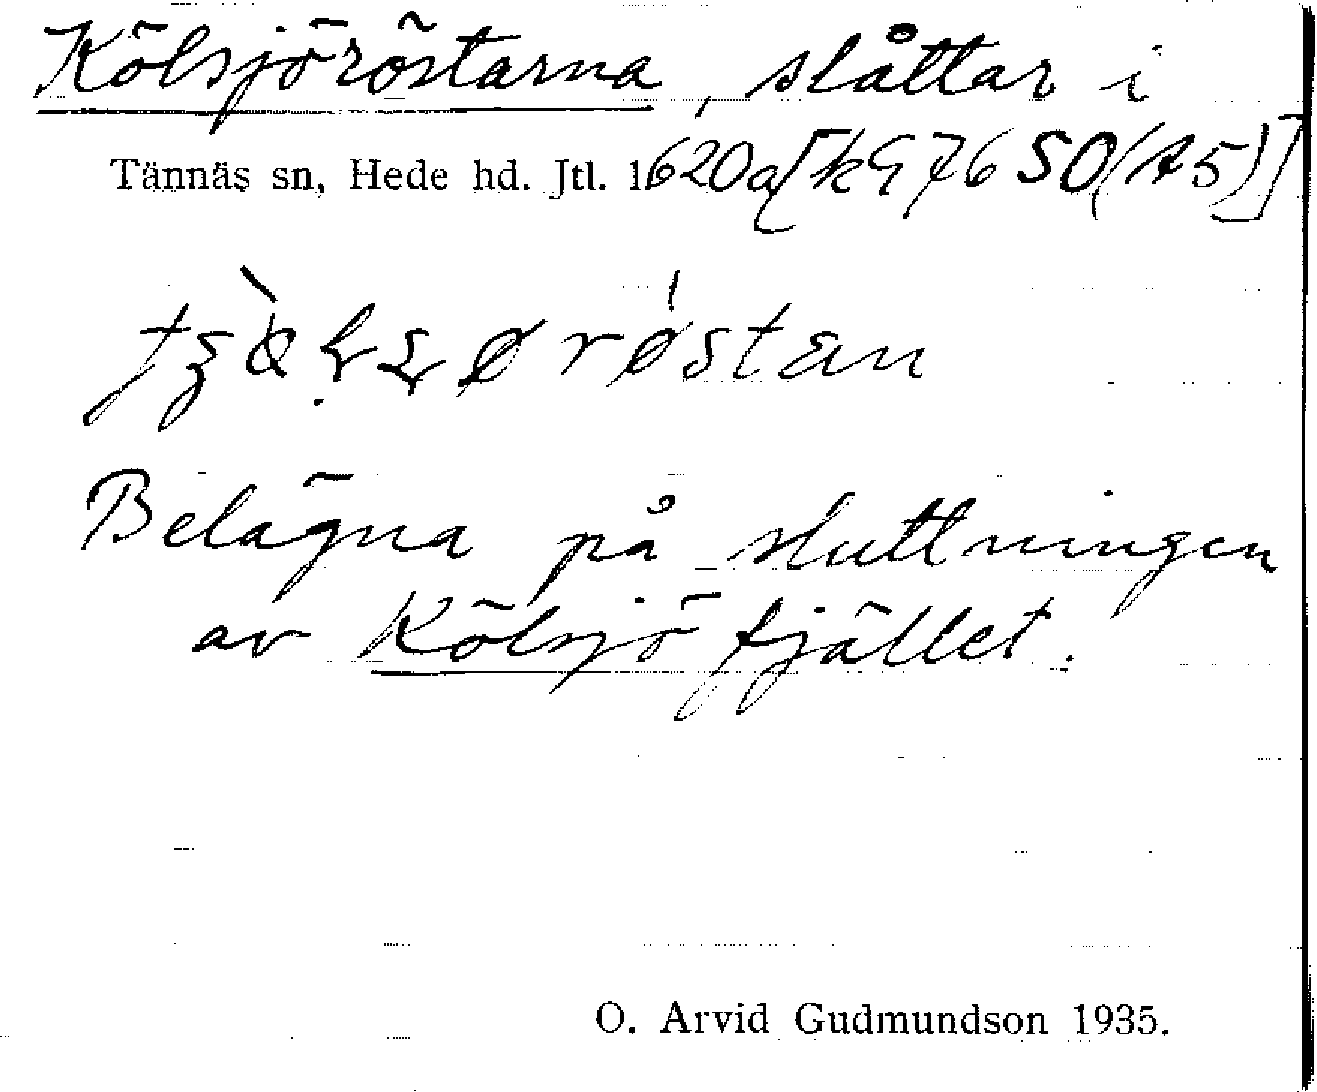 Kölsjöröstarna, slåttar i
Tännäs sn, Hede hd. Jtl. 1620a[k976 SO(A5)]
Belägna på sluttningen
av Kölsjöfjället.
O. Arvid Gudmundson 1935.